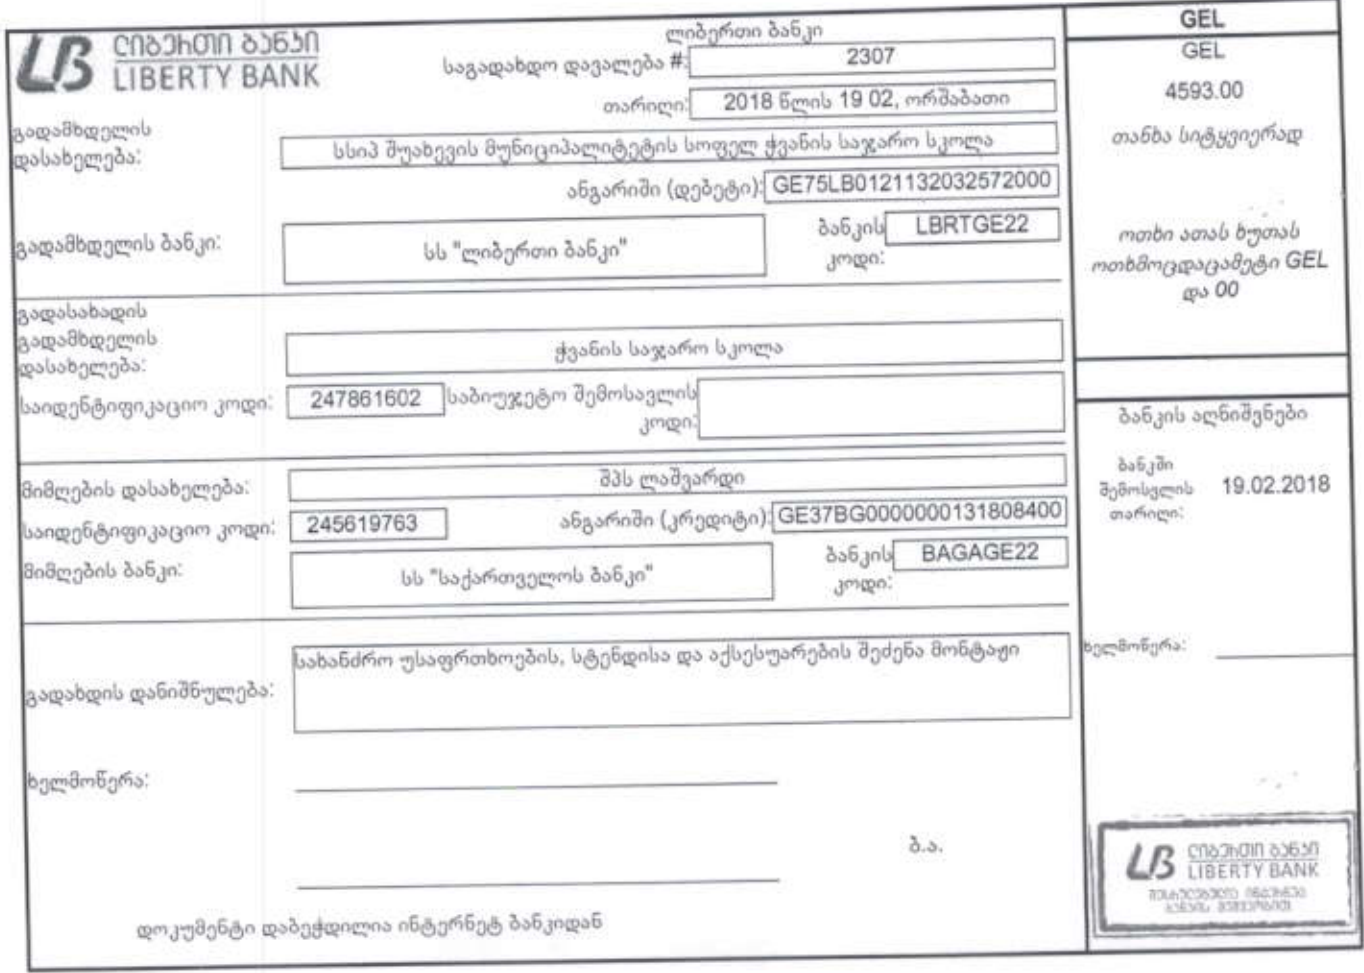 ლიბერთი ბანკი
LIBERTY BANK
ლიბერთი ბანკი
საგადახდო დავალება #: 2307
თარიღი: 2018 წლის 19 02, ორშაბათი
გადამხდელის
დასახელება:
სსიპ შუახევის მუნიციპალიტეტის სოფელ ჭვანის საჯარო სკოლა
ანგარიში (დებეტი): GE75LB0121132032572000
გადამხდელის ბანკი: სს "ლიბერთი ბანკი"
ბანკის
კოდი:
LBRTGE22
გადასახადის
გადამხდელის
დასახელება:
ჭვანის საჯარო სკოლა
საიდენტიფიკაციო კოდი: 247861602
საბიუჯეტო შემოსავლის
კოდი:
მიმღების დასახელება: შპს ლაშვარდი
საიდენტიფიკაციო კოდი: 245619763 ანგარიში (კრედიტი): GE37BG0000000131808400
მიმღების ბანკი: სს "საქართველოს ბანკი"
ბანკის
კოდი:
BAGAGE22
გადახდის დანიშნულება:
სახანძრო უსაფრთხოების, სტენდისა და აქსესუარების შეძენა მონტაჟი
ხელმოწერა:
ბ.ა.
დოკუმენტი დაბეჭდილია ინტერნეტ ბანკიდან
GEL
GEL
4593.00
თანხა სიტყვიერად
ოთხი ათას ხუთას
ოთხმოცდაცამეტი GEL
და 00
ბანკის აღნიშვნები
ბანკში
შემოსვლის
თარიღი:
19.02.2018
ხელმოწერა:
ლიბერთი ბანკი
LIBERTY BANK